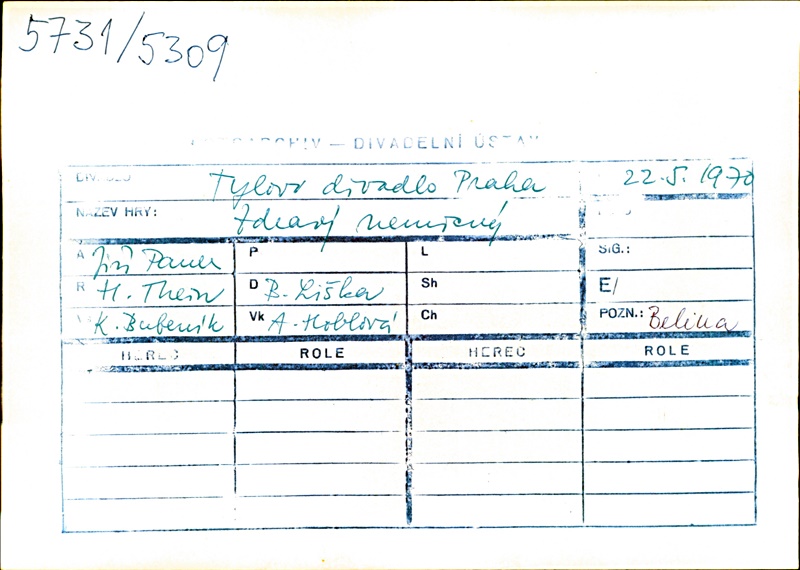 5731/5309
FOTOARCHIV — DIVADELNÍ ÚSTAV
DIVADLO Tylovo divadlo Praha 22.5.1970
NÁZEV HRY: Zdravý nemocný
A Jiří Pauer P L SIG.:
R H. Thein D B. Liška Sh E/
V K. Bubeník Vk A. Hoblová Ch POZN.: Belina
HEREC ROLE HEREC ROLE